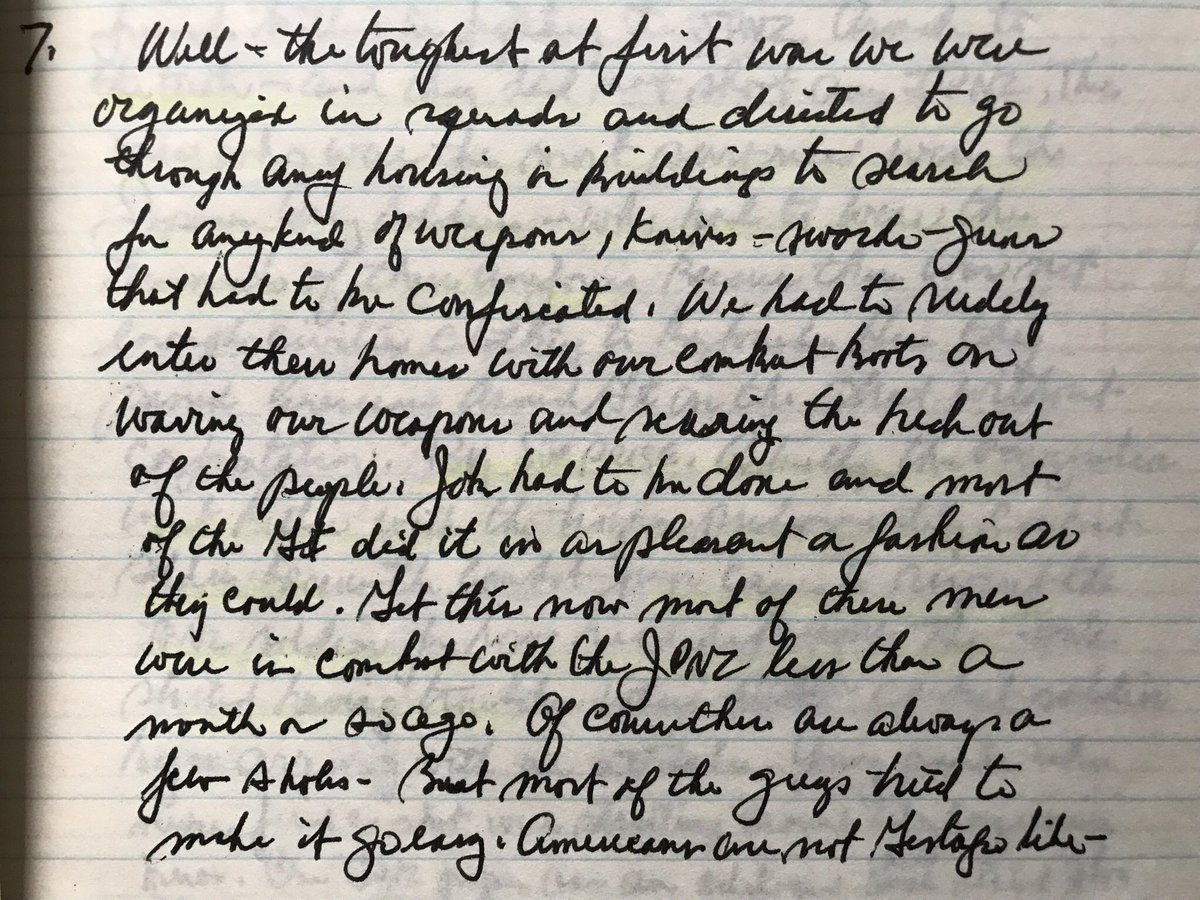 7. Well - the toughest at first was we were
organized in squads and directed to go
through any housing or buildings to search
for any kind of weapons, knives - swords - guns
that had to be confiscated. We had to rudely
enter their homes with our combat boots on
waving our weapons and scaring the heck out
of the people. Job had to be done and most
of the GIs did it in as pleasant a fashion as
they could. Yet this now most of these men
were in combat with the JPNZ less than a
month or so ago. Of course there are always a
few A holes - But most of the guys tried to
make it go easy. Americans are not Gestapo like -